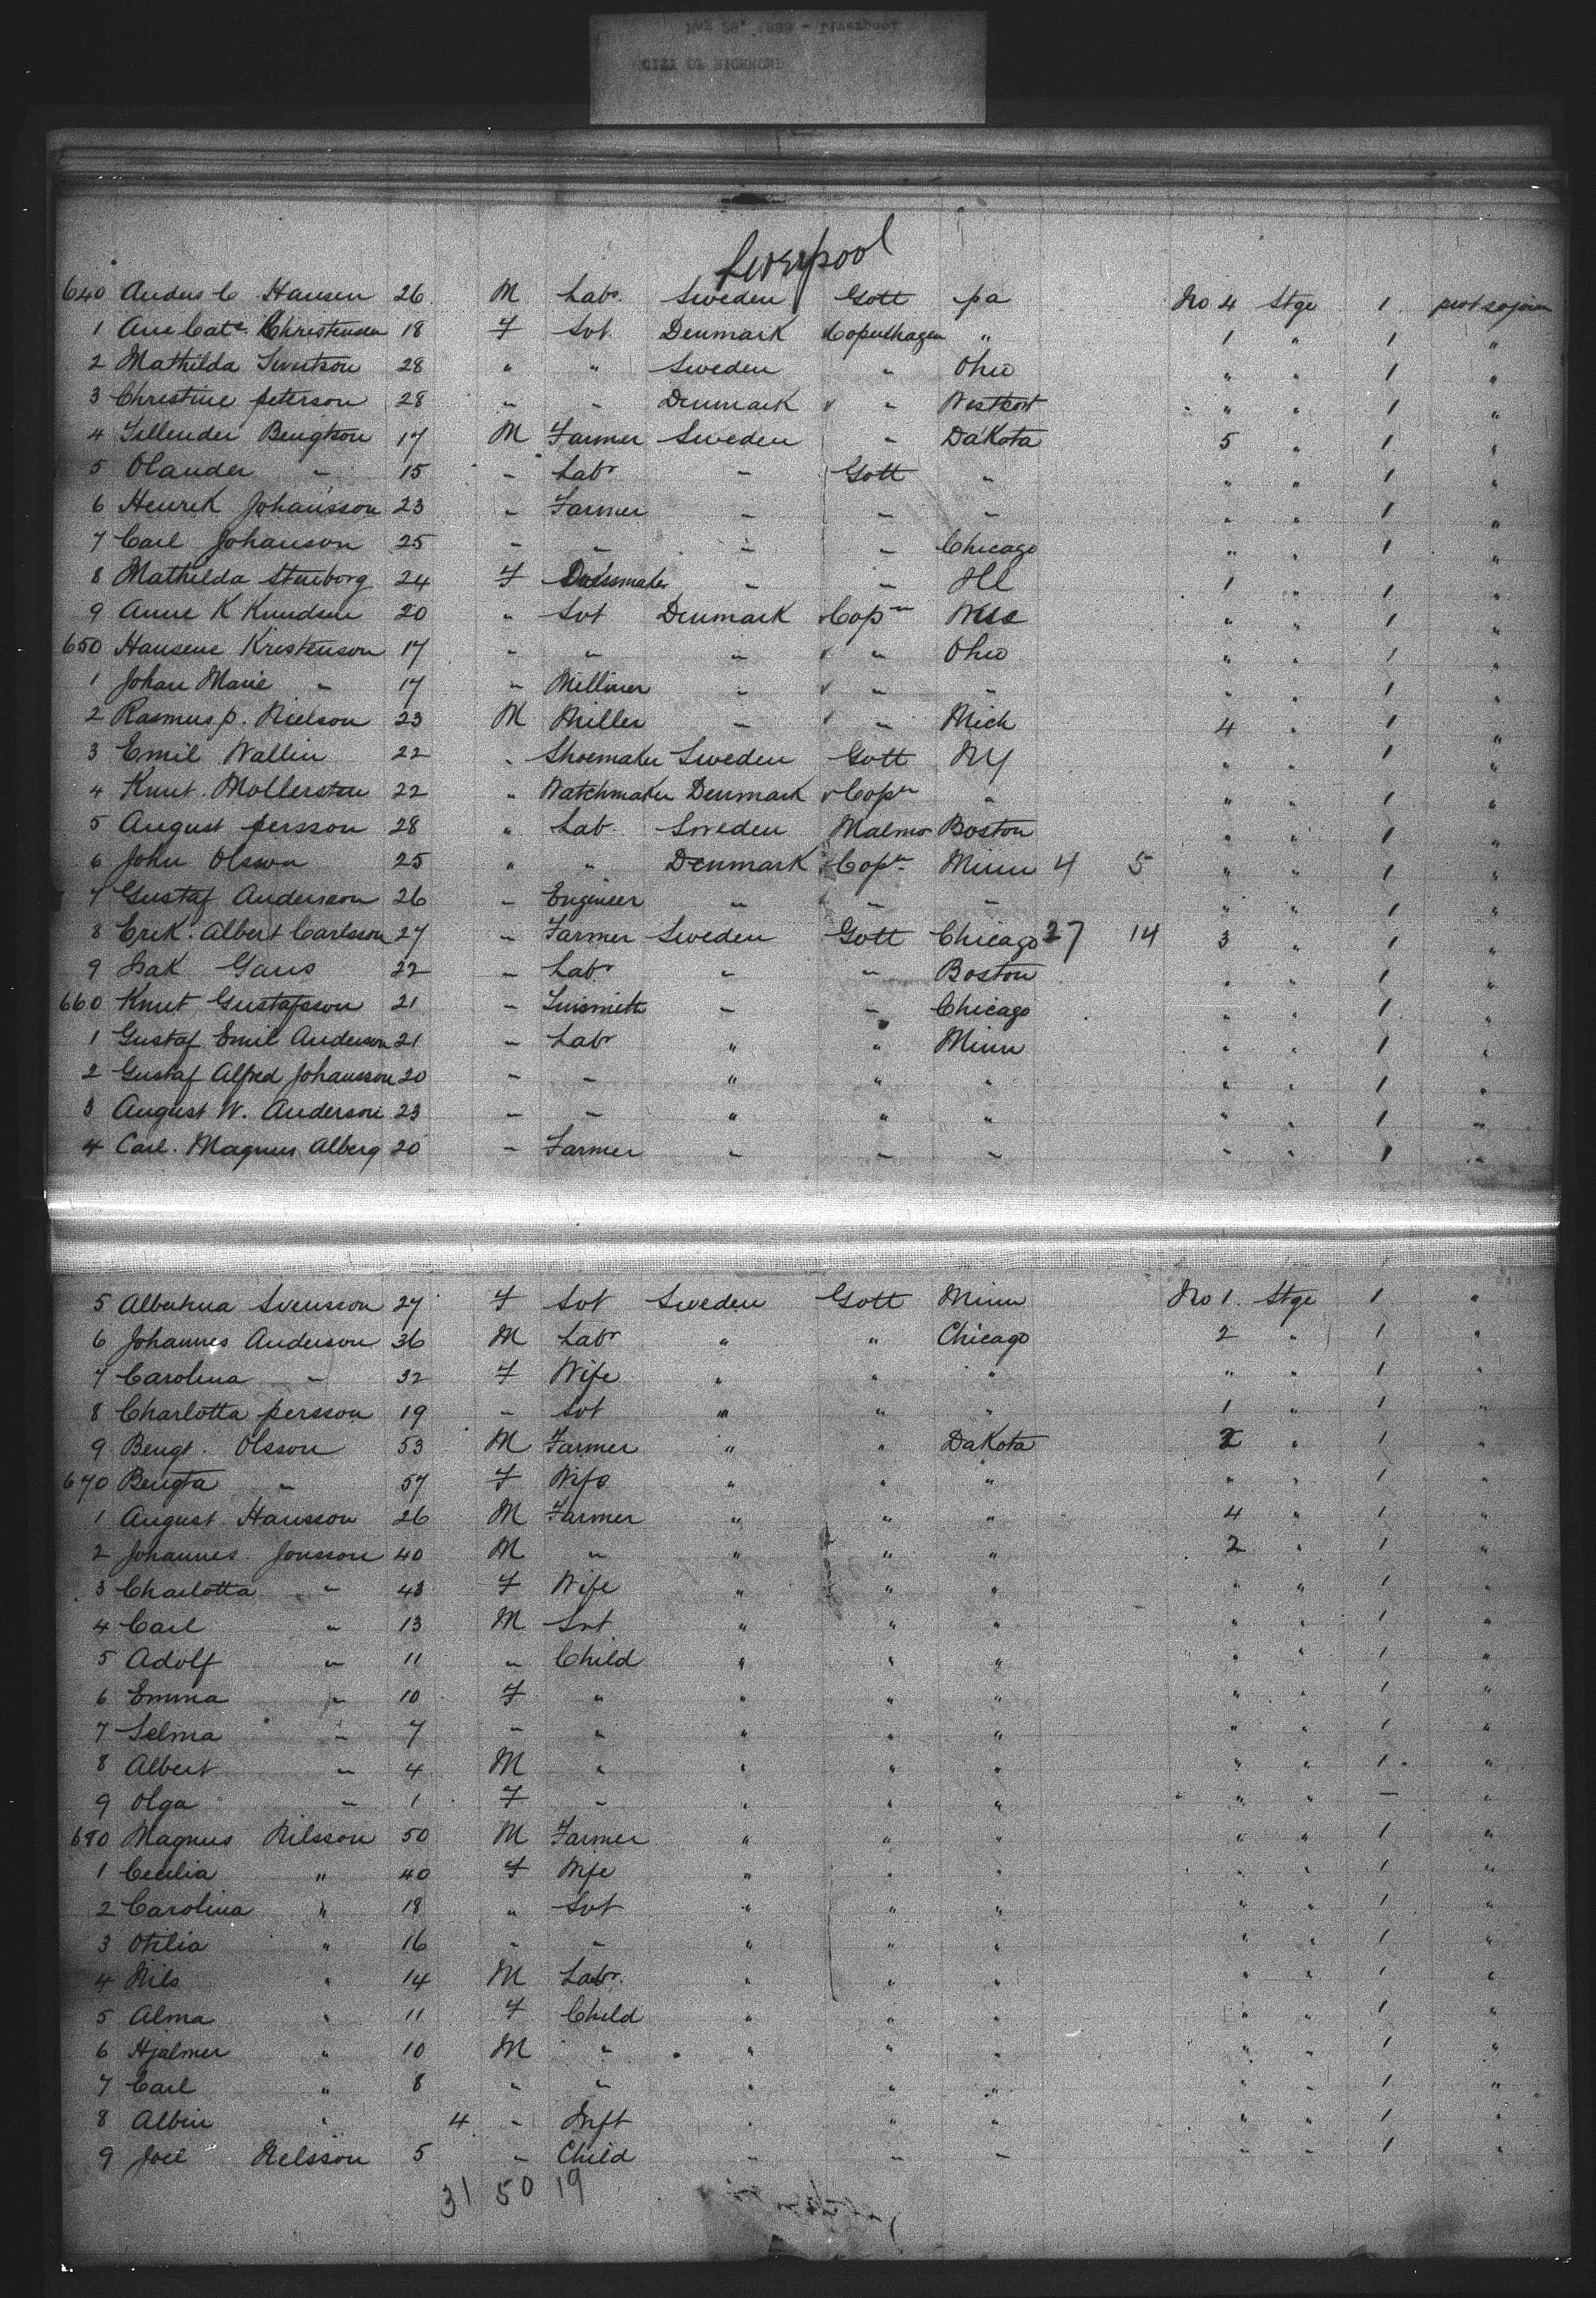 Liverpool
640 Anders C Hansen 26 M Labr Sweden Gott pa No 4 Stge 1 prot sojourn
1 Ane Cate Christensen 18 F Svt Denmark Copenhagen " 1 " 1 "
2 Mathilda 28 " " Sweden " Ohio " " 1 "
3 Christine peterson 28 " " Denmark " Westport " " 1 "
4 Bengtson 17 M Farmer Sweden " Dakota 5 " 1 "
5 Olander " 15 " Labr " Gott " " " 1 "
6 Henrik Johansson 23 " Farmer " " " " " 1 "
7 Carl Johanson 25 " " " " Chicago " " 1 "
8 Mathilda 24 F Dressmaker " " Ill 1 " 1 "
9 Anne K Knudsen 20 " Svt Denmark Copn Wis " " 1 "
650 Hansene Kristenson 17 " " " " Ohio " " 1 "
1 Johan Marie " 17 " Milliner " " " " " 1 "
2 Rasmus p. Nielson 23 M Miller " " Mich 4 " 1 "
3 Emil Wallin 22 " Shoemaker Sweden Gott NY " " 1 "
4 Knut Mollersten 22 " Watchmaker Denmark Copn " " " 1 "
5 August persson 28 " Lab. Sweden Malmo Boston " " 1 "
6 John Olsson 25 " " Denmark Copn Minn 4 5 " " 1 "
7 Gustaf Anderson 26 " Engineer " " " " " 1 "
8 Erik Albert Carlsson 27 " Farmer Sweden Gott Chicago 27 14 3 " 1 "
9 Isak Gans 22 " Labr " " Boston " " 1 "
660 Knut Gustafsson 21 " Tinsmith " " Chicago " " 1 "
1 Gustaf Emil Anderson 21 " Labr " " Minn " " 1 "
2 Gustaf Alfred Johansson 20 " " " " " " " 1 "
3 August W. Anderson 23 " " " " " " " 1 "
4 Carl. Magnus Alberg 20 " Farmer " " " " " 1 "
5 Albertina Svensson 27 F Svt Sweden Gott Minn No 1. Stge 1 "
6 Johannes Anderson 36 M Labr " " Chicago 2 " 1 "
7 Carolina " 32 F Wife " " " " " 1 "
8 Charlotta persson 19 " Svt " " " 1 " 1 "
9 Bengt. Olsson 53 M Farmer " " Dakota 2 " 1 "
670 Bengta " 57 F Wife " " " " " 1 "
1 August Hansson 26 M Farmer " " " 4 " 1 "
2 Johannes Jonsson 40 M " " " " 2 " 1 "
3 Charlotta " 43 F Wife " " " " " 1 "
4 Carl " 13 M Svt " " " " " 1 "
5 Adolf " 11 " Child " " " " " 1 "
6 Emma " 10 F " " " " " " 1 "
7 Selma " 7 " " " " " " " 1 "
8 Albert " 4 M " " " " " " 1 "
9 Olga " 1 F " " " " " " — "
680 Magnus Nilsson 50 M Farmer " " " " " 1 "
1 Cecilia " 40 F Wife " " " " " 1 "
2 Carolina " 18 " Svt " " " " " 1 "
3 Otilia " 16 " " " " " " " 1 "
4 Nils " 14 M Labr. " " " " " 1 "
5 Alma " 11 F Child " " " " " 1 "
6 Hjalmer " 10 M " " " " " " 1 "
7 Carl " 8 " " " " " " " 1 "
8 Albin " 4 " Inft " " " " " 1 "
9 Joel Nelsson 5 " Child " " " " " 1 "
31 50 19